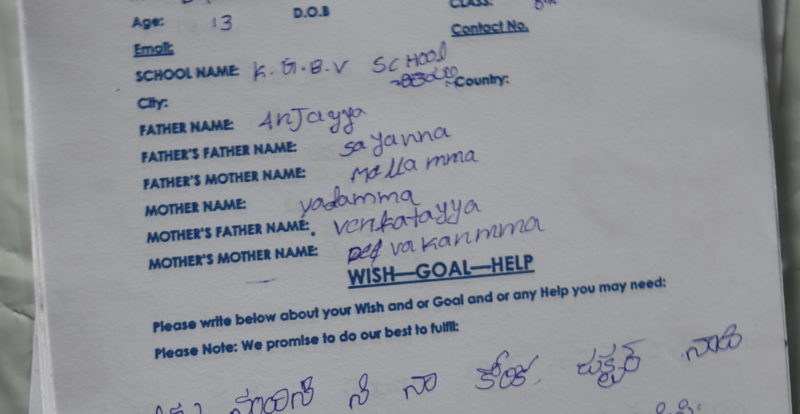 Age: 13 D.O.B CLASS: 8th
Email: Contact No.
SCHOOL NAME: K.G.B.V SCHOOL
City: Country:
FATHER NAME: Anjayya
FATHER'S FATHER NAME: Sayanna
FATHER'S MOTHER NAME: Mallamma
MOTHER NAME: yadamma
MOTHER'S FATHER NAME: venkatayya
MOTHER'S MOTHER NAME: Devakanmma
WISH—GOAL—HELP
Please write below about your Wish and or Goal and or any Help you may need:
Please Note: We promise to do our best to fulfil:
ನಾ